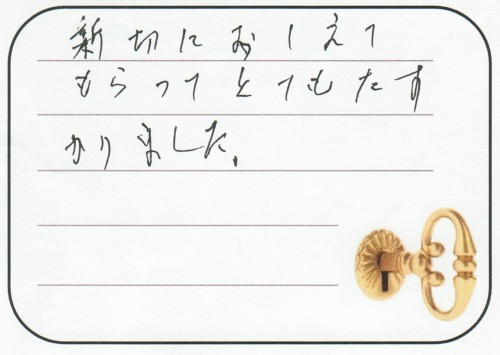 新切におしえて
もらってとてもたす
かりました。